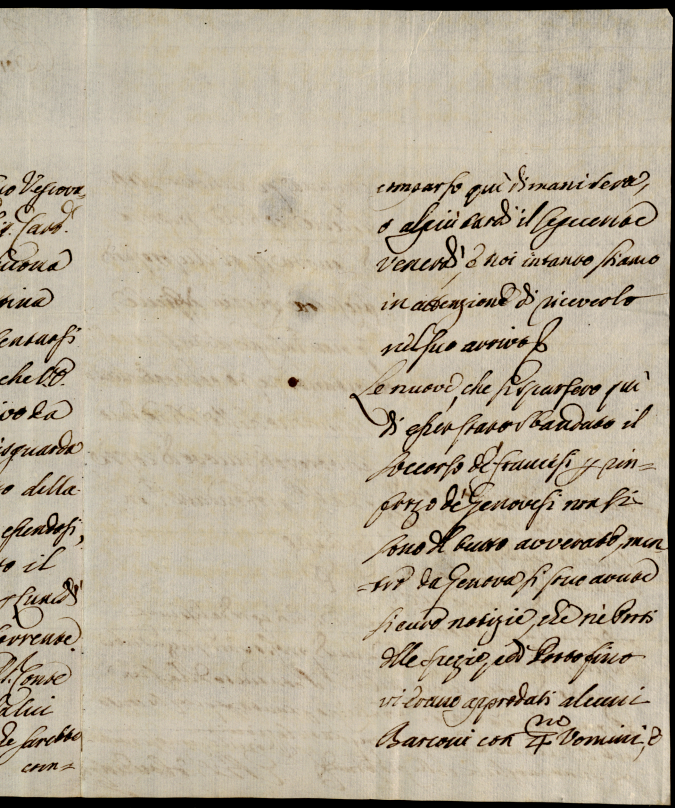 Vescova-
Card.
tina
che
da
riguarda
o della
essendosi,
to il
Lunedì
corrente
Conte
sarebbe
com=
comparso quì dimani sera,
o al più tardi il seguente
Venerdì, e noi intanto stiamo
in attenzione di riceverlo
nel suo arrivo
Le nuove, che si sparsero quì
di esser stato sbandato il
soccorso de Francesi p rin=
forzo de Genovesi non si
sono del tutto avverate, men
=tre da Genova si sono avute
sicure notizie, che ne Porti
delle Spezie, e di Portofino
vi erano approdati alcuni
Barconi con Uomini, e